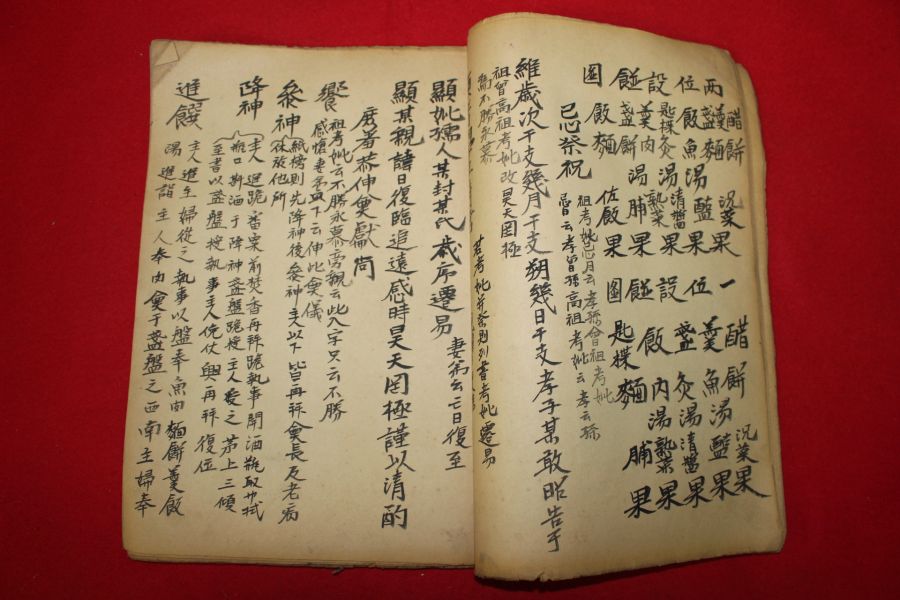 兩 醋餅 沉菜 果
位 盞羹麵 湯 醢 果
設 飯魚 湯 清醬 果
饌 匙楪炙 湯 熟菜 果
羹肉
盞餅 湯 脯 果
圖 飯麵 佐飯 果
一 醋 餅 沉菜 果
位 羹 魚 湯 醢 果
設 盞 炙 湯 清醬 果
饌 飯 內 湯 熟菜 果
圖 匙楪 麵 脯 果
忌祭祝
祖考妣忌月云孝孫曾祖考妣
曾云孝曾孫高祖考妣云孝玄孫
維歲次干支幾月干支朔幾日干支孝子某敢昭告于
祖曾高祖考妣改昊天罔極
爲不勝永慕
若考妣並祭則列書考妣遷易
顯妣孺人某封某氏歲序遷易 妻弟云亡日復至
顯某親諱日復臨追遠感時昊天罔極謹以清酌
庶羞恭伸奠獻尚
饗 祖考妣云不勝永慕旁親云此八字只云不勝
感愴妻弟以下云伸此奠儀
參神 紙榜則先降神後參神主人以下皆再拜奠長及老病
休於他所
降神 主人進跪審案前焚香再拜跪執事開酒取巾拭
瓶口斟酒于降神盞盤跪授主人受之茅上三傾
至書以盞盤授執事主人俛伏興再拜復位
進饌 主人進主婦從之執事以盤奉魚肉麵餅羹飯
湯進詣主人奉肉奠于盞盤之西南主婦奉